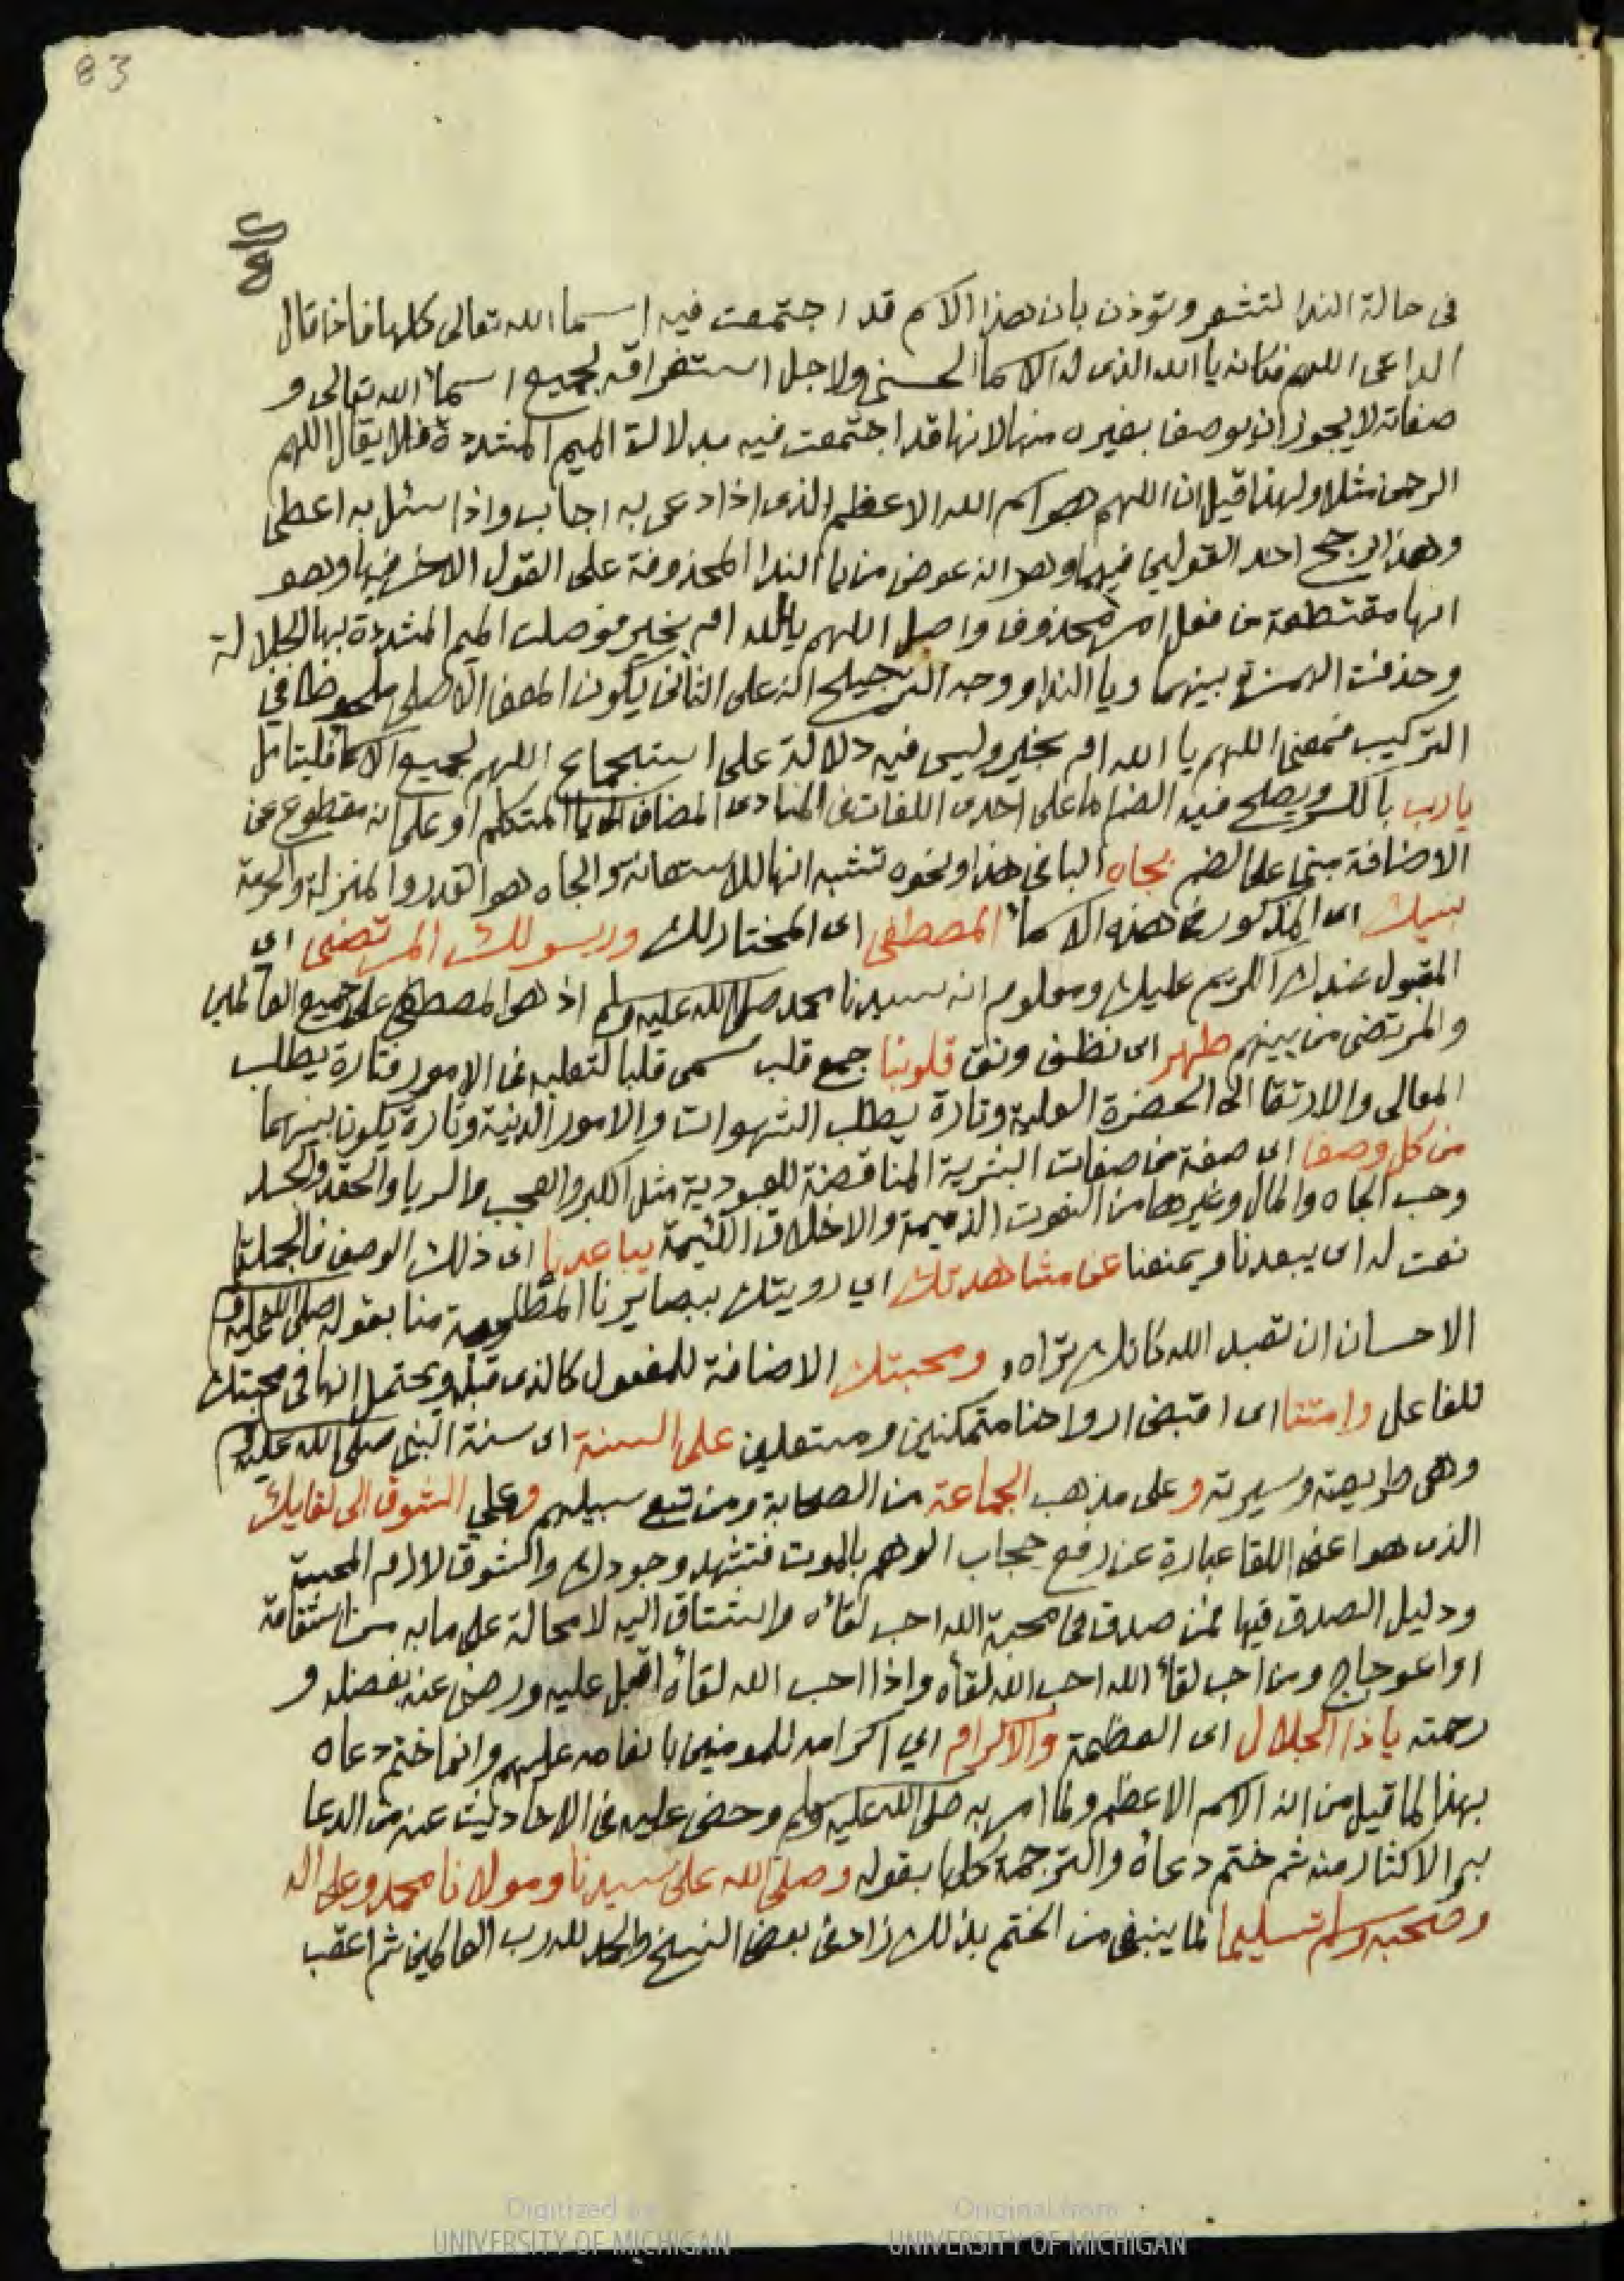 83
في حالة الندا لتشعر وتوذن بان هذا الاسم قد اجتمعت فيه اسما الله تعالى كلها فاذا قال
الداعى اللهم فكانه يا الله الذى له الاسما الحسنى ولاجل استغراقه لجميع اسماء الله تعالى و
صفاته لا يجوز ان يوصف بغيره منها لانها قد اجتمعت فيه بدلالة الميم المشددة فلا يقال اللهم
الرحمن مثلا ولهذا قيل ان اللهم هو اسم الله الاعظم الذى اذا دعى به اجاب واذا سئل به اعطى
وهذا يرجح احد القولين فيها وهو انه عوض من يا الندا المحذوفة على القول الاخر فيها وهو
انها مقتطعة من فعل امر محذوف واصل اللهم يا الله ام بخير فوصلت الميم المشددة بها الجلالة
وحذفت الهمزة بينهما ويا الندا ووجه الترجيح انه على الثانى يكون المعنى الاصلى ملحوظا في
التركيب فمعنى اللهم يا الله ام بخير وليس فيه دلالة على استجماع اللهم لجميع الاسما فليتامل
يارب بالكسر ويصلح فيه الضم اما على احدى اللغات فى المنادى المضاف الى يا المتكلم او على انه مقطوع عن
الاضافة مبنى على الضم بجاه البا في هذا ونحوه تشبه انها للاستعانة والجاه هو القدر والمنزلة والحرمة
نبيك اى المذكور في هذه الاسماء المصطفى اى المختار لك ورسولك المرتضى اى
المقبول عندك الكريم عليك ومعلوم انه سيدنا محمد صلى الله عليه وسلم اذ هو المصطفى على جميع العالمين
والمرتضى من بينهم طهر اى نظف ونق قلوبنا جمع قلب سمى قلبا لتقلبه فى الامور فتارة يطلب
المعالى والارتقا الى الحضرة العلية وتارة يطلب الشهوات والامور الدنية وتارة يكون بينهما
من كل وصف اى صفة من صفات البشرية المناقضة للعبودية مثل الكبر والعجب والريا والحقد والحسد
وحب الجاه والمال وغيرها من النعوت الذميمة والاخلاق اللئيمة يباعدنا اى ذلك الوصف فالجملة
نعت له اى يبعدنا ويمنعنا عن مشاهدتك اي رويتك ببصايرنا المطلوبة منا بقوله صلى الله عليه وسلم
الاحسان ان تعبد الله كانك تراه، ومحبتك الاضافة للمفعول كالذى قبله ويحتمل انها فى محبتك
للفاعل وامتنا اى اقبض ارواحنا متمكنين ومستعلين على السنة اى سنة النبى صلى الله عليه وسلم
وهى طريقته وسيرته وعلى مذهب الجماعة من الصحابة ومن تبع سبيلهم وعلى الشوق الى لقايك
الذى هو اعنى اللقا عبارة عن رفع حجاب الوهم بالموت فتشهد وجودك والشوق لازم المحبة
ودليل الصدق فيها فمن صدق فى محبة الله احب لقاءه واشتاق اليه لا محالة على ما به من استقامة
او اعوجاج ومن احب لقاء الله احب الله لقاءه واذا احب الله لقاءه اقبل عليه ورضى عنه بفضله و
رحمته ياذا الجلال اى العظمة والاكرام اي اكرامه للمومنين بانعامه عليهم وانما ختم دعاه
بهذا لما قيل من انه الاسم الاعظم ولما امر به صلى الله عليه وسلم وحض عليه فى الاحاديث عنه من الدعا
به والاكثار منه ثم ختم دعاءه والترجمة كلها بقوله وصلى الله على سيدنا ومولانا محمد وعلى اله
وصحبه وسلم تسليما لما ينبغى من الختم بذلك زاد فى بعض النسخ والحمد لله رب العالمين ثم اعقب
Digitized by
UNIVERSITY OF MICHIGAN
Original from
UNIVERSITY OF MICHIGAN